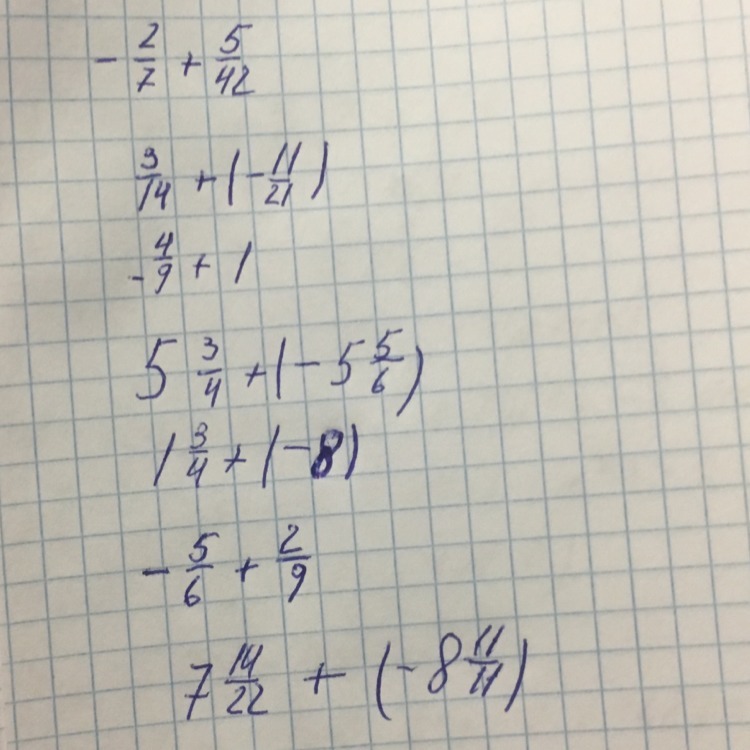 - 2/7 + 5/42
3/14 + (- 11/21)
- 4/9 + 1
5 3/4 + (- 5 5/6)
1 3/4 + (- 8)
- 5/6 + 2/9
7 14/22 + (- 8 11/11)